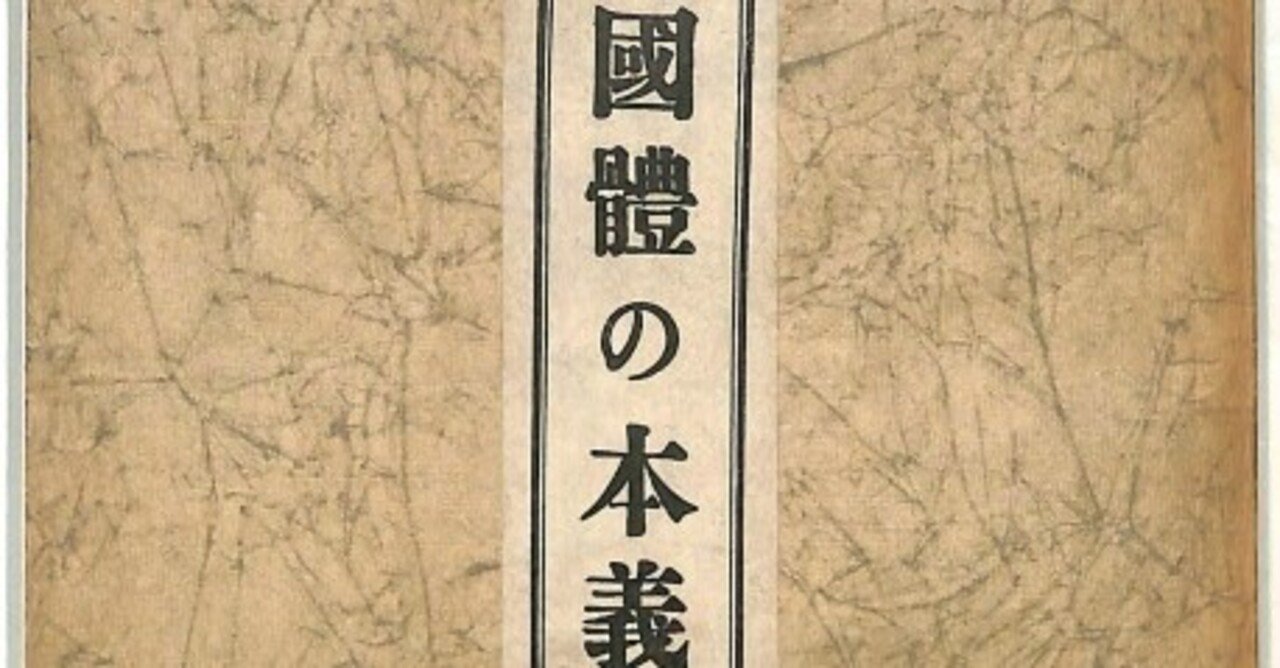 國體の本義